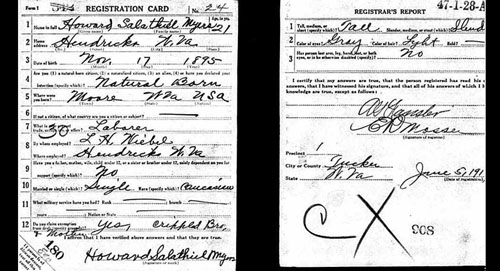 Form 1 REGISTRATION CARD No. 24
1 Name in full Howard Salathiel Myers 21
2 Home address Hendricks W.Va
3 Date of birth Nov. 17 1895
4 Are you (1) a natural-born citizen, (2) a naturalized citizen, (3) an alien, (4) or have you declared your intention (specify which)? Natural Born
5 Where were you born? Moore W.Va USA
6 If not a citizen, of what country are you a citizen or subject?
7 What is your present trade, occupation, or office? Laborer
8 By whom employed? L. H. Niebel
Where employed? Hendricks W.Va
9 Have you a father, mother, wife, child under 12, or a sister or brother under 12, solely dependent on you for support (specify which)?
No
10 Married or single (which)? Single Race (specify which)? Caucasian
11 What military service have you had? Rank Branch
years Nation or State
12 Do you claim exemption from draft (specify grounds)? Yes, Crippled Bro,
& Mother
I affirm that I have verified above answers and that they are true.
180
Howard Salathiel Myers
REGISTRAR'S REPORT 47-1-28-A
1 Tall, medium, or short (specify which)? Tall Slender, medium, or stout (which)? Slend
2 Color of eyes? Gray Color of hair? Light Bald?
3 Has person lost arm, leg, hand, foot, or both eyes, or is he otherwise disabled (specify)? No
I certify that my answers are true, that the person registered has read his own answers, that I have witnessed his signature, and that all of his answers of which I have knowledge are true, except as follows:
Precinct 1
City or County Tucker
State W.Va
June 5, 191
(Date of registration)